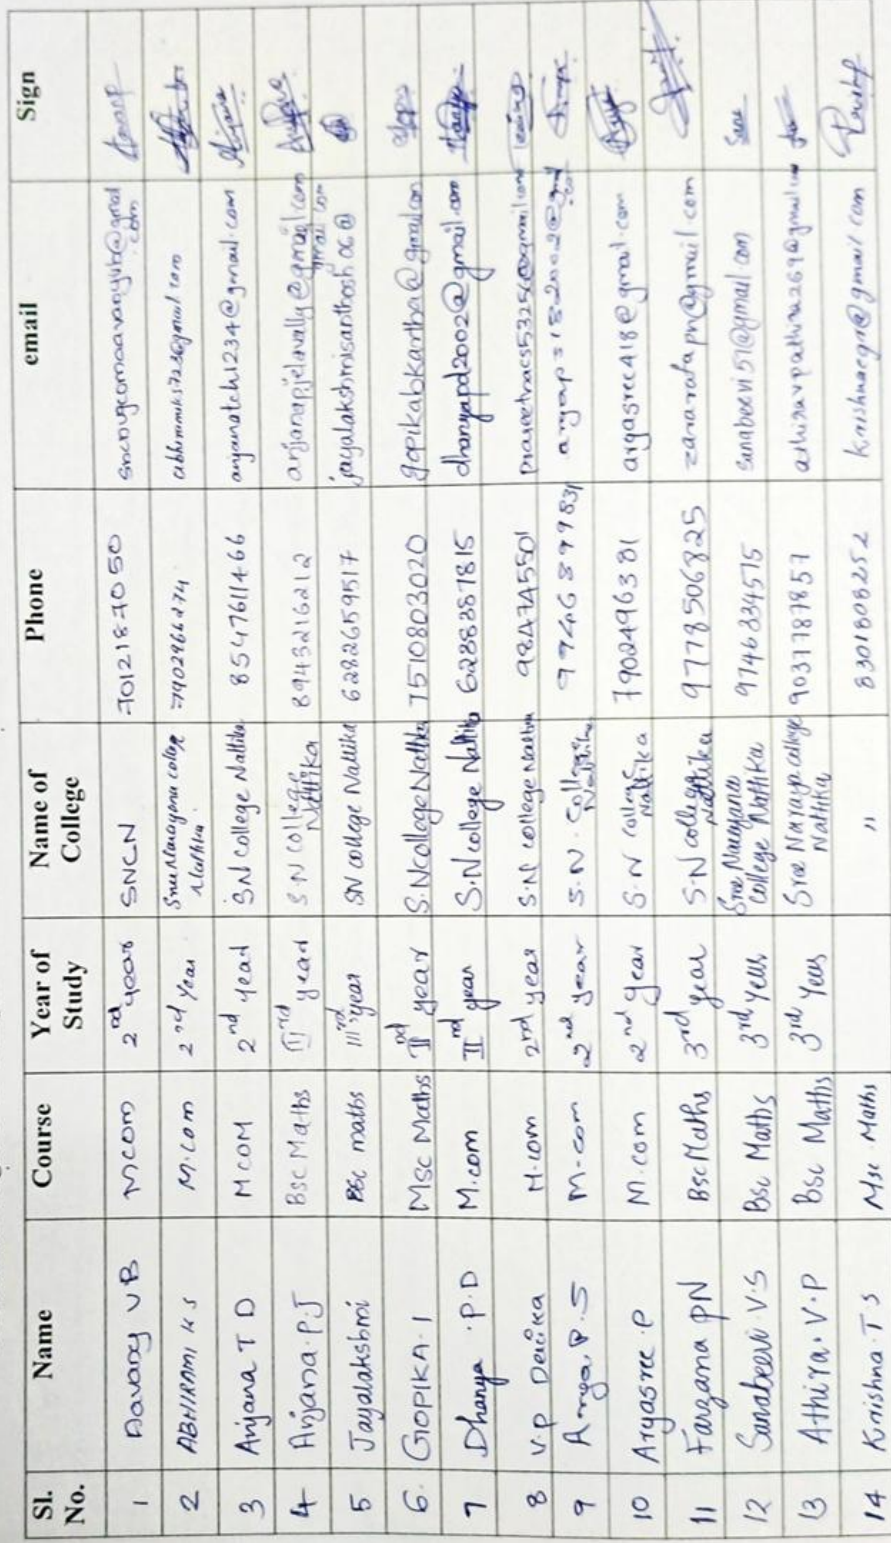 Sl. No. Name Course Year of Study Name of College Phone email Sign
1 Aavany VB Mcom 2nd year SNCN 7012187050
2 ABHIRAMI K S M.Com 2nd Year Sree Narayana college Nattika 7902966274
3 Anjana T D M COM 2nd Year S.N College Nattika 8547611466 anjanatch1234@gmail.com
4 Anjana.P.J BSC Maths IIIrd year S.N College Nattika 8943216212 anjanapjelavally@gmail.com
5 Jayalakshmi BSC maths IIIrd year SN college Nattika 6282659517 jayalakshmisanthosh06@gmail.com
6. GOPIKA.I Msc Maths IInd year S.N college Nattika 7510803020 gopikabkartha@gmail.com
7 Dhanya .P.D M.com IInd year S.N college Nattika 6238387815 dhanyapd2002@gmail.com
8 V.P Devika M.com 2nd year S.N college Nattika 984745501
9 Arya.P.S M.com 2nd year S.N. College Nattika
10 Aryasree.P M.com 2nd year S.N College Nattika 7902496381 aryasree418@gmail.com
11 Farzana PN Bsc Maths 3rd year S.N college Nattika 9778506825 zanarafapn@gmail.com
12 Sanabeevi V.S Bsc Maths 3rd Year Sree Narayana College Nattika 9746334575 sanabeevi51@gmail.com Sana
13 Athira.V.P Bsc Maths 3rd Year Sree Narayana college Nattika 9037787857 athiravpathira269@gmail.com
14 Krishna.T S Msc Maths " 8301808252